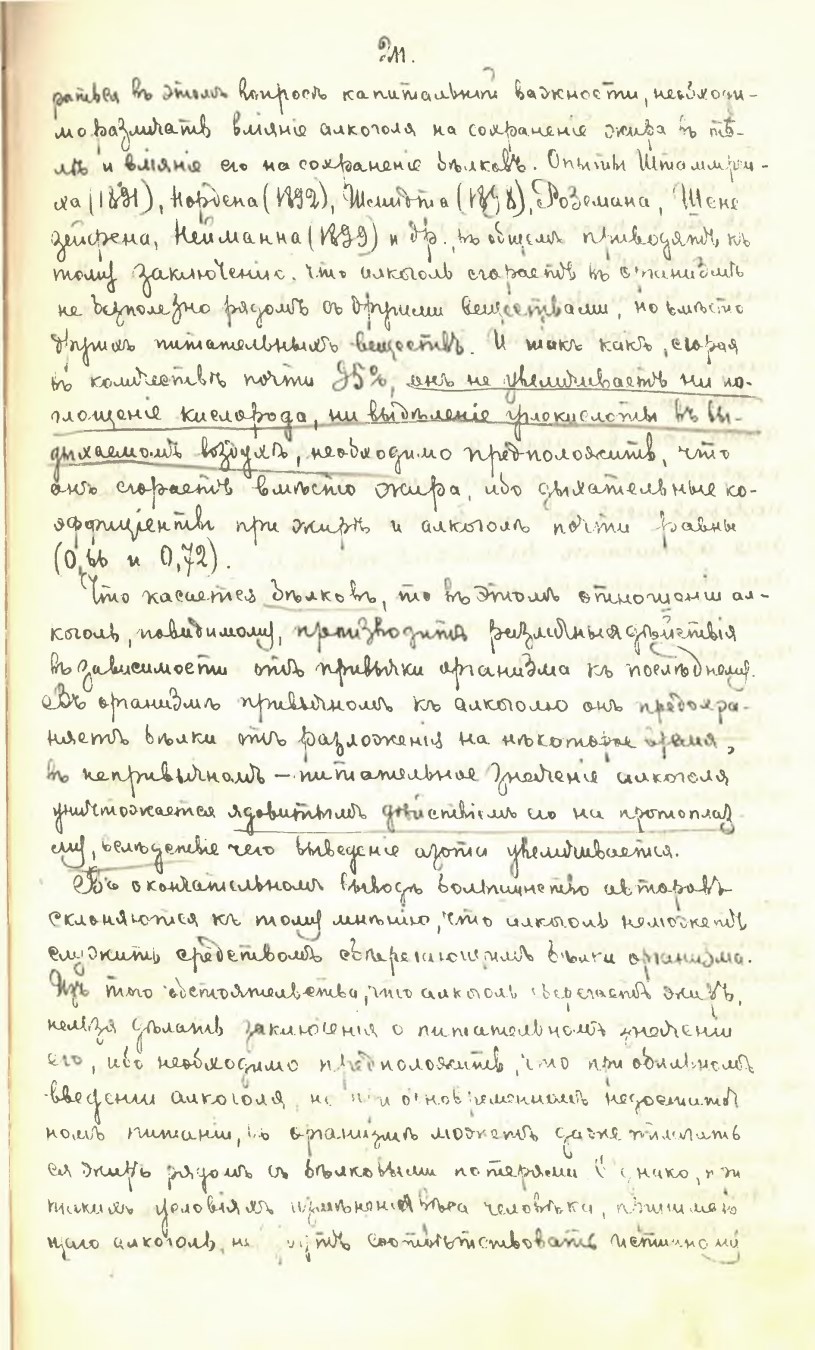 211.
раться въ этомъ вопросѣ капитальной важности, необходи-
мо различать вліяніе алкоголя на сохраненіе жира въ тѣ-
лѣ и вліяніе его на сохраненіе бѣлковъ. Опыты Штаммрей-
ха (1891), Нордена (1892), Шмидта (1898), Роземана, Шене
зейфена, Неймана (1899) и др., въ общемъ приводятъ къ
тому заключенію, что алкоголь сгораетъ въ организмѣ
не безполезно рядомъ съ другими веществами, но вмѣсто
другихъ питательныхъ веществъ. И такъ какъ, сгорая
въ количествѣ почти 95%, онъ не увеличиваетъ ни по-
глощеніе кислорода, ни выдѣленіе углекислоты въ вы-
дыхаемомъ воздухѣ, необходимо предположить, что
онъ сгораетъ вмѣсто жира, ибо дыхательные ко-
эффиціенты при жирѣ и алкоголѣ почти равны
(0,66 и 0,72).
Что касается бѣлковъ, то въ этомъ отношеніи ал-
коголь, повидимому, производитъ различныя дѣйствія
въ зависимости отъ привычки организма къ послѣднему.
Въ организмѣ привычномъ къ алкоголю онъ предохра-
няетъ бѣлки отъ разложенія на нѣкоторое время,
въ непривычномъ – питательное значеніе алкоголя
уничтожается ядовитымъ дѣйствіемъ его на протоплаз
му, вслѣдствіе чего выведеніе азота увеличивается.
Въ окончательномъ выводѣ большинство авторовъ
склоняются къ тому мнѣнію, что алкоголь не можетъ
служить средствомъ сберегающимъ бѣлки организма.
Изъ того обстоятельства, что алкоголь сберегаетъ жиръ,
нельзя дѣлать заключенія о питательномъ значеніи
его, ибо необходимо предположить, что при обильномъ
введеніи алкоголя, но при одновременномъ недостаточ
номъ питаніи, въ организмѣ можетъ даже отлагать
ся жиръ рядомъ съ бѣлковыми потерями. Однако, при
такихъ условіяхъ измѣненія вѣса человѣка, принимаю
щаго алкоголь, не будутъ соотвѣтствовать истинному